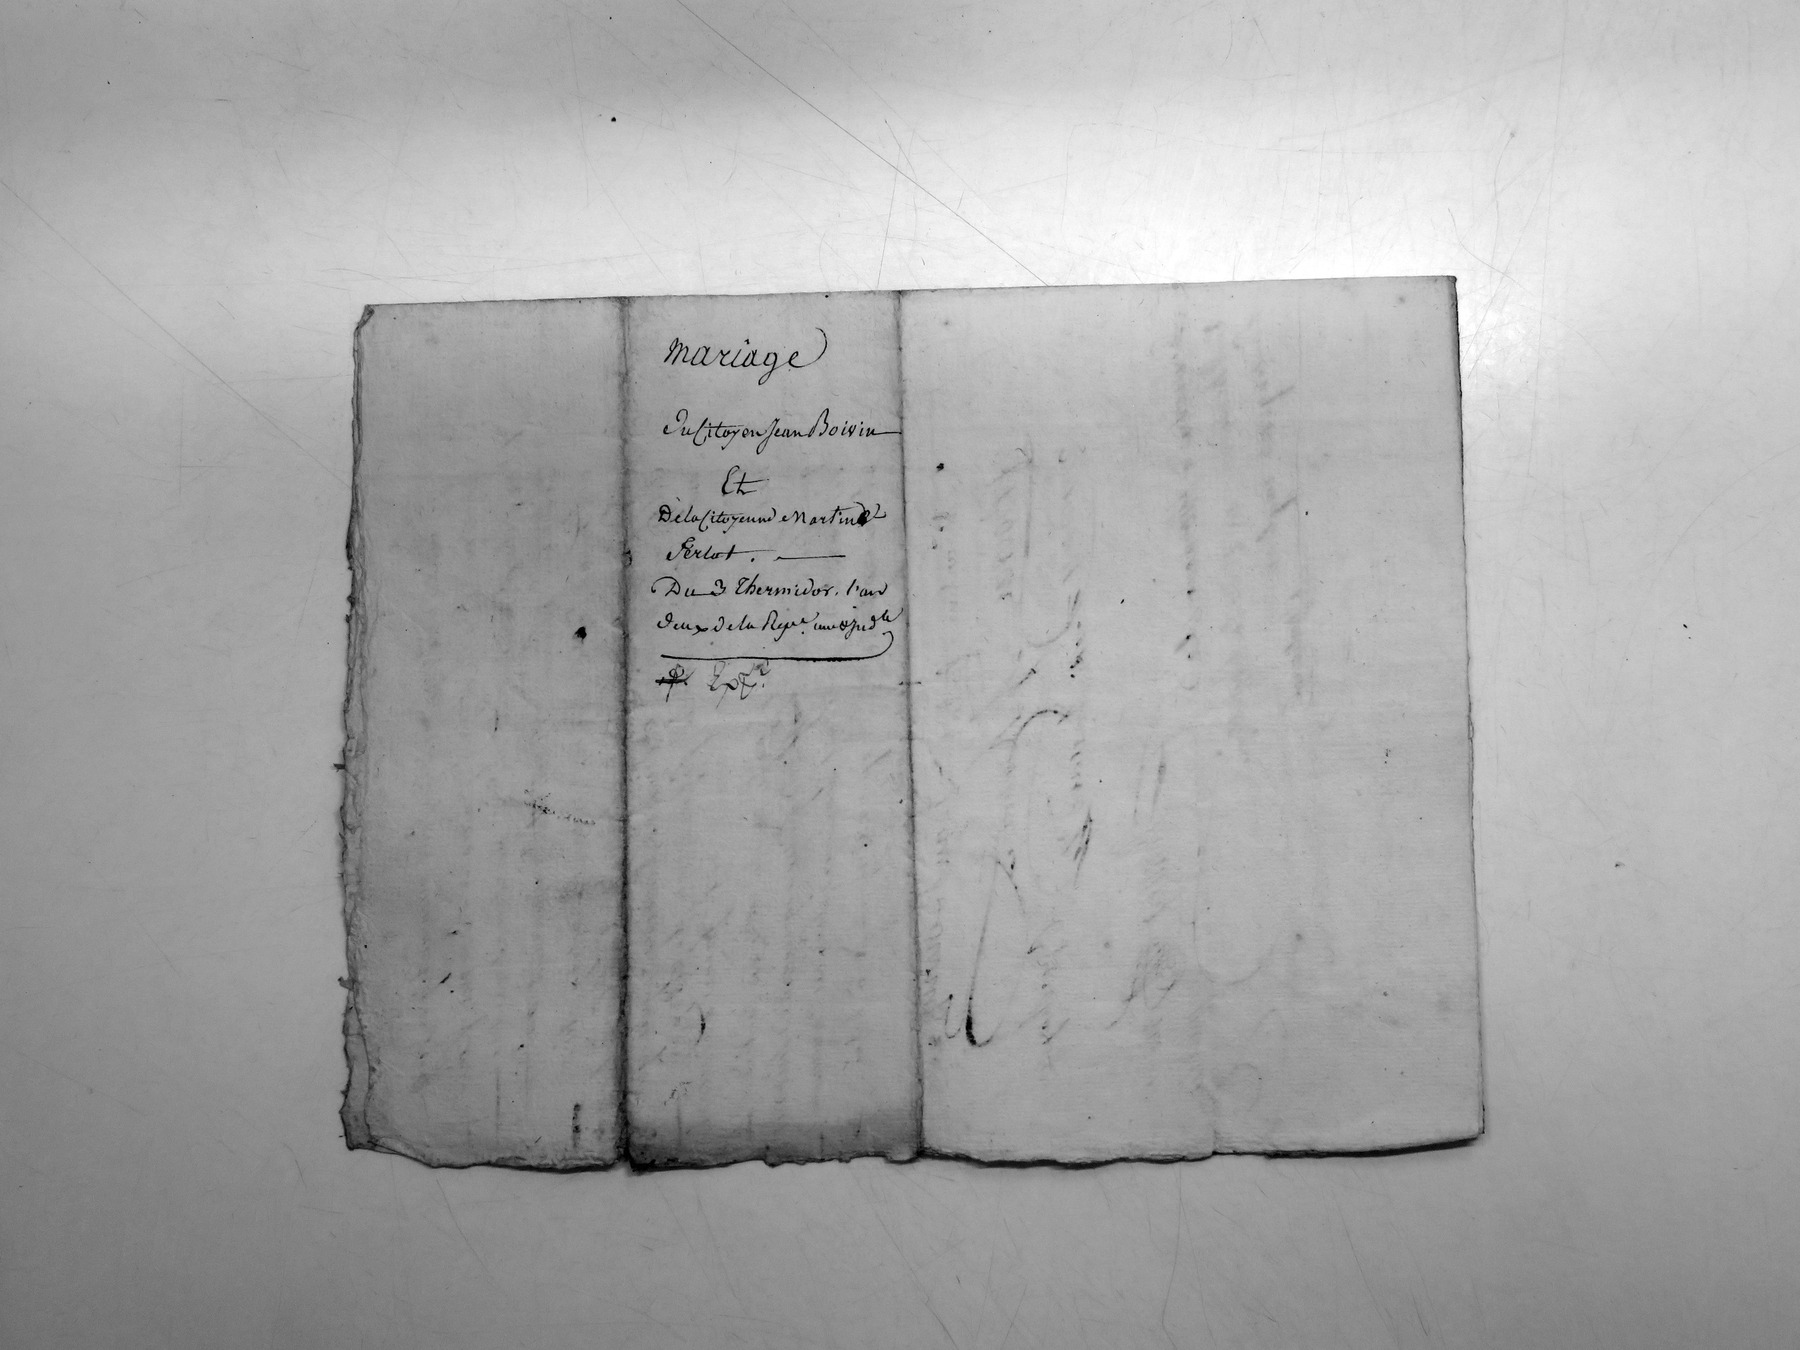 Mariage
Du Citoyen Jean Boivin
Et
De la Citoyenne Martine
Ferlot.
Du 3 Thermidor. l'an
deux de la Repe. une & Indle